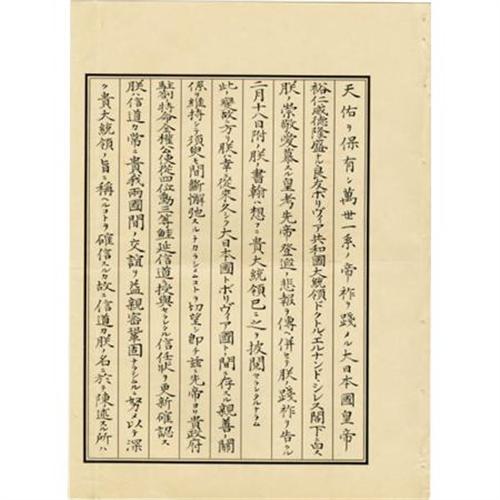 天佑ヲ保有シ萬世一系ノ帝祚ヲ踐メル大日本國皇帝
裕仁威德隆盛ナル良友ボリヴィア共和國大統領ドクトル、エルナンド、シレス閣下ニ白ス
朕ノ崇敬愛慕スル皇考先帝登遐ノ悲報ヲ傳ヘ併セテ朕ノ踐祚ヲ告クル
二月十八日附ノ朕ノ書翰ハ想フニ貴大統領已ニ之ヲ披閱セラレタルナラム
此ノ變故ニ方リ朕ハ幸ニ從來久シク大日本國トボリヴィア國トノ間ニ存スル親善ノ關
係ヲ維持シテ須臾モ間斷懈弛スルトカラシメムコトヲ切望シ即チ茲ニ先帝ヨリ貴政府
駐劄特命全權公使從四位勳三等鮭延信道ニ授與セラレタル信任狀ヲ更新確認ス
朕ハ信道カ常ニ貴我兩國間ノ交誼ヲ益親密鞏固ナラシムルニ努メ以テ深
ク貴大統領ノ旨ニ稱ヘルコトヲ確信スルカ故ニ信道カ朕ノ名ニ於テ陳述スル所ハ